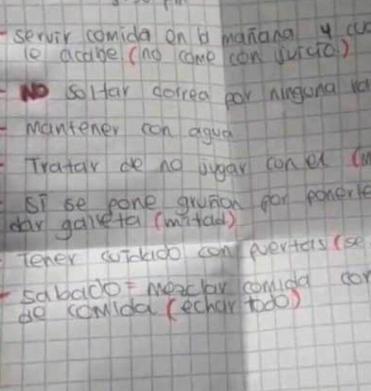 - servir comida en la mañana y cua
lo acabe (no come con sucio)
- NO soltar correa por ninguna ra
- Mantener con agua
- Tratar de no jugar con el (m
- Si se pone gruñon por ponerle
dar galleta (mitad)
- Tener cuidado con puertas (se
- sabado = mezclar comida con
de comida (echar todo)